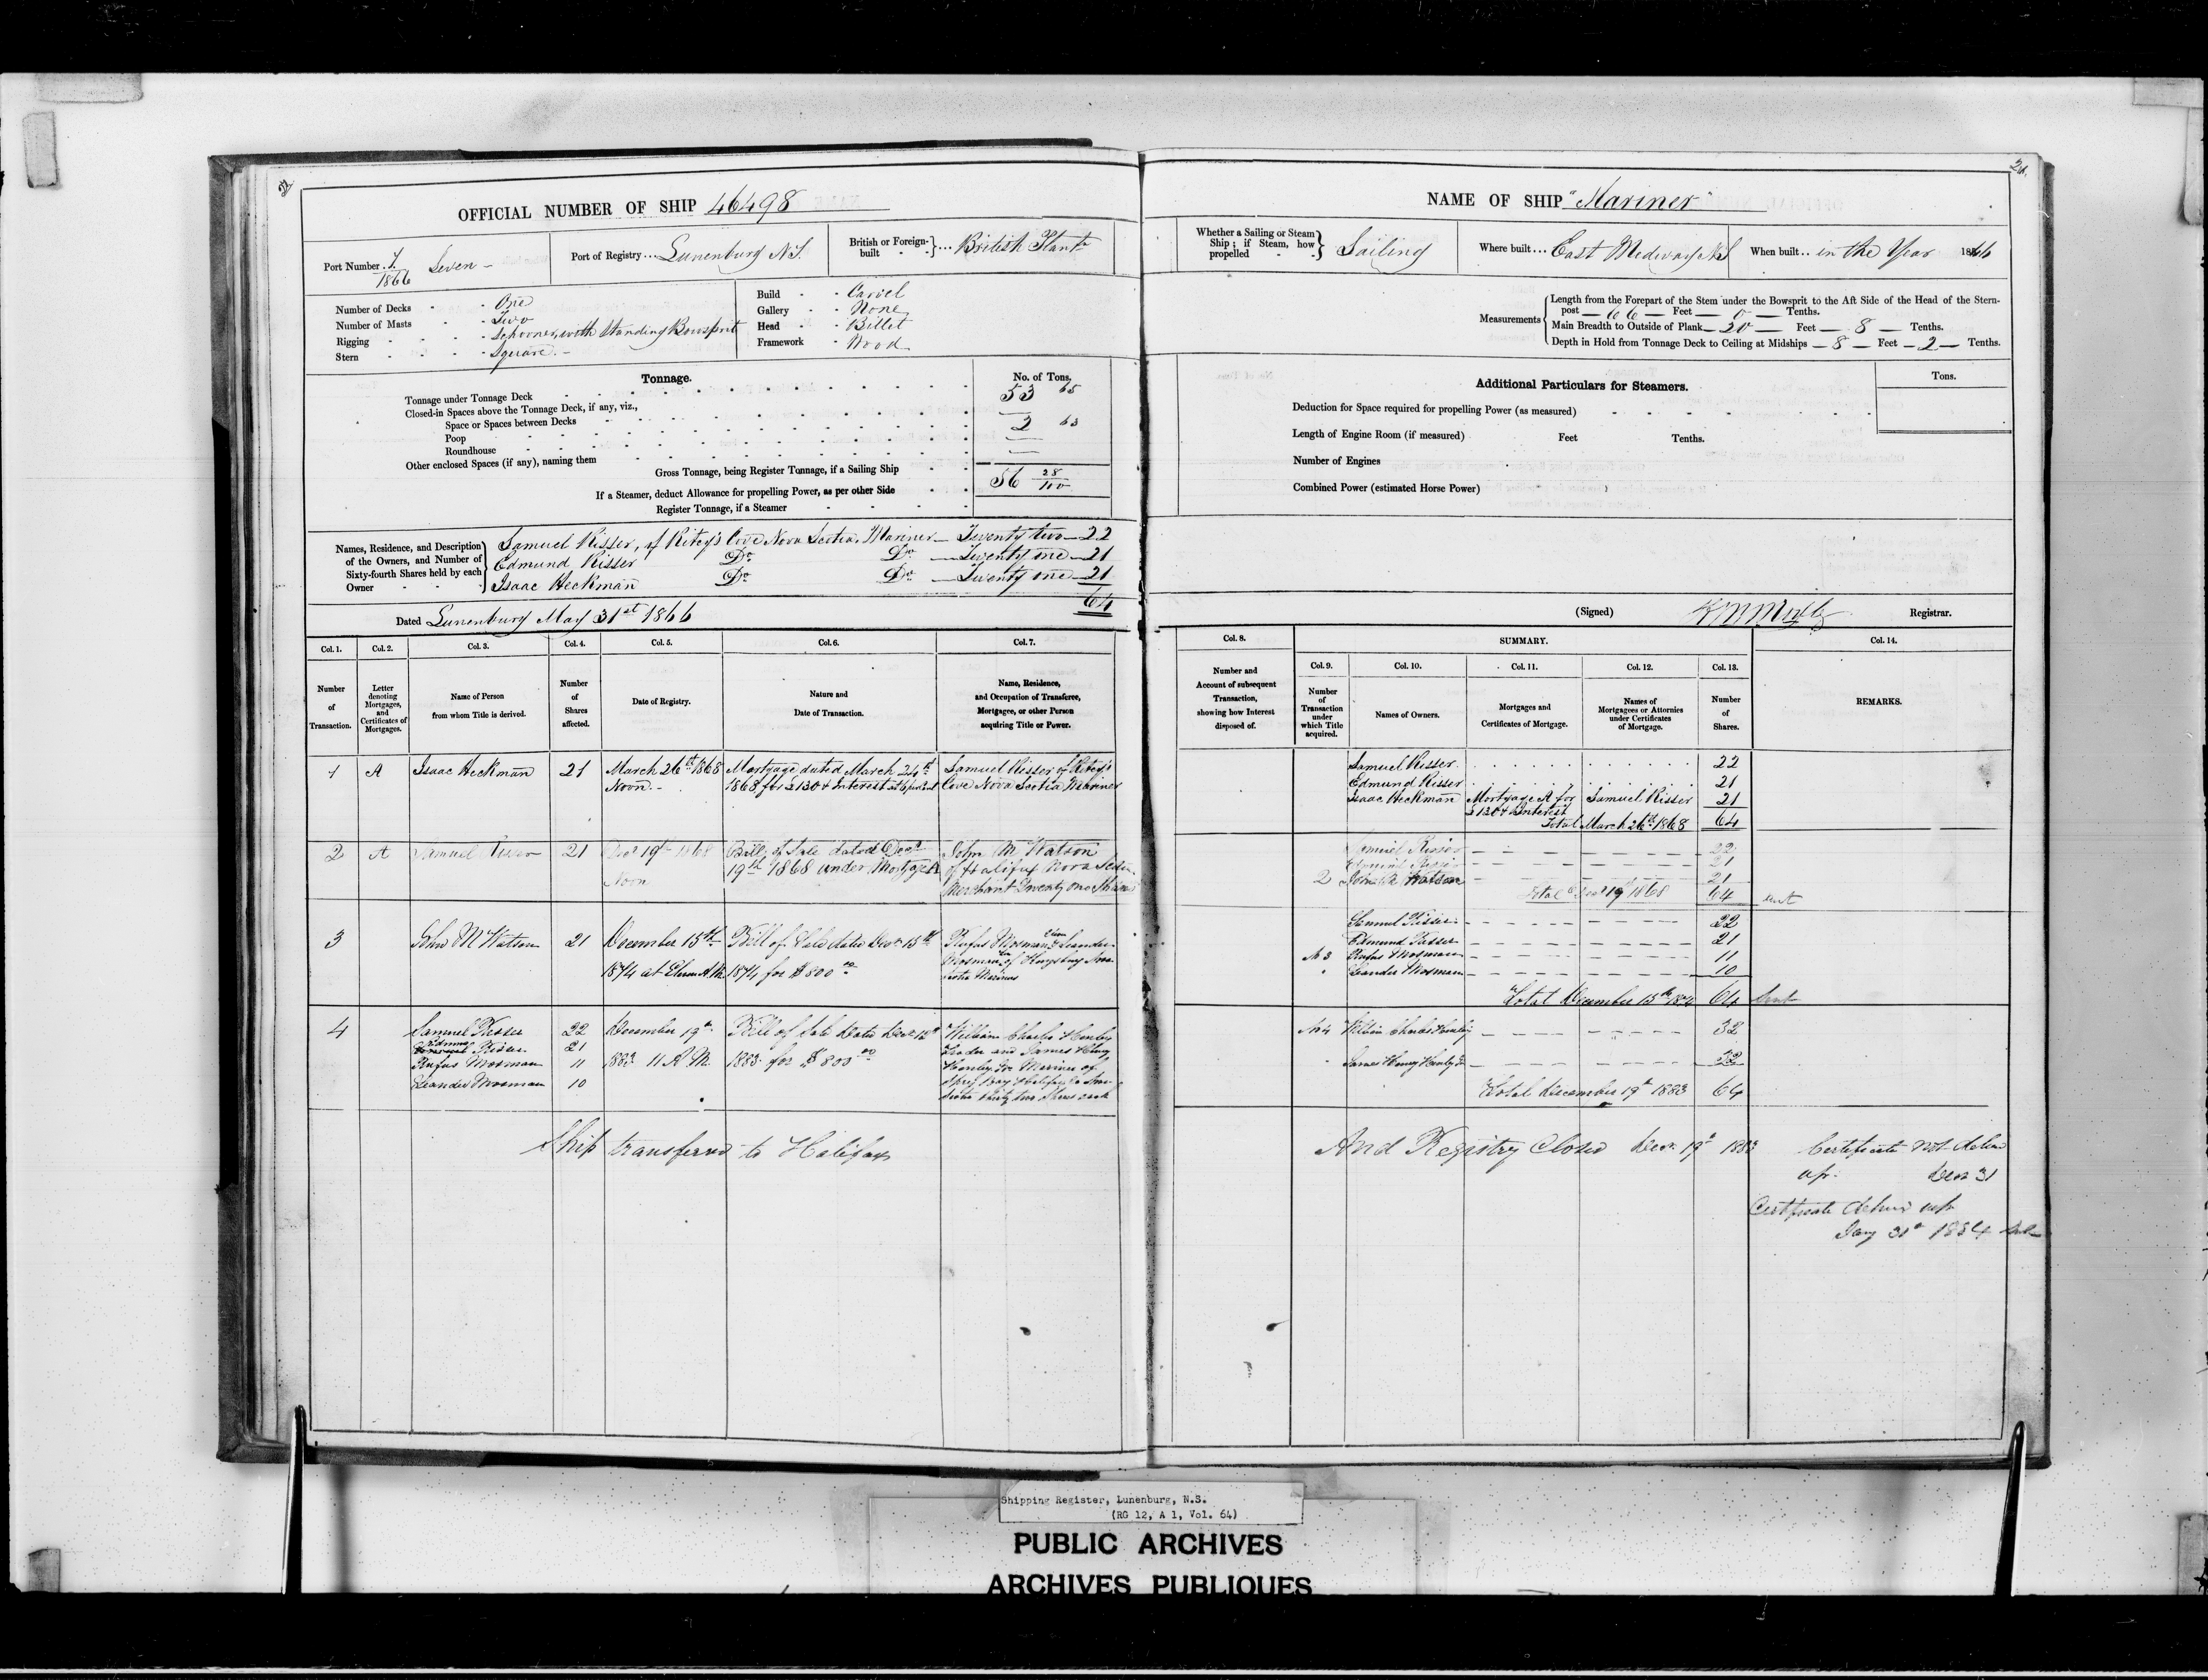 OFFICIAL NUMBER OF SHIP 46498
Port Number 7/1866 Seven -
Port of Registry... Lunenburg N.S.
British or Foreign-built }... British Plant
Number of Decks - - One
Number of Masts - - Two
Rigging - - - - Schooner, with Standing Bowsprit
Stern - - - - Square. -
Build - - Carvel
Gallery - - None
Head - - Billet
Framework - Wood
Tonnage.
No. of Tons.
Tonnage under Tonnage Deck 53 65
Closed-in Spaces above the Tonnage Deck, if any, viz.,
Space or Spaces between Decks
Poop 2 63
Roundhouse
Other enclosed Spaces (if any), naming them
Gross Tonnage, being Register Tonnage, if a Sailing Ship 56 28/100
If a Steamer, deduct Allowance for propelling Power, as per other Side
Register Tonnage, if a Steamer
Names, Residence, and Description of the Owners, and Number of Sixty-fourth Shares held by each Owner
Samuel Risser, of Ritcy's Cove Nova Scotia, Mariner - Twenty two - 22
Edmund Risser Do Do - Twenty one - 21
Isaac Heckman Do Do - Twenty one - 21
64
Dated Lunenburg May 31st 1866
Col. 1. Col. 2. Col. 3. Col. 4. Col. 5. Col. 6. Col. 7.
Number of Transaction.
Letter denoting Mortgages, and Certificates of Mortgages.
Name of Person from whom Title is derived.
Number of Shares affected.
Date of Registry.
Nature and Date of Transaction.
Name, Residence, and Occupation of Transferee, Mortgagee, or other Person acquiring Title or Power.
1 A Isaac Heckman 21 March 26th 1868 Mortgage dated March 24th Samuel Risser of Ritcy's
Noon. - 1868 for £130 & Interest at 6 pr Cent Cove Nova Scotia Mariner
2 A Samuel Risser 21 Decr 19th 1868 Bill of Sale dated Decr John M Watson
Noon 19th 1868 under Mortgage A of Halifax Nova Scotia
Merchant Twenty one Shares
3 John M Watson 21 December 15th Bill of Sale dated Decr 15th Rufus Mosman Leander
1874 at Eleven A.M. 1874 for $800 00 Mosman of Kingsburg Nova
Scotia Mariners
4 Samuel Risser 22 December 19th Bill of Sale dated Decr William Charles Henley
Edmund Risser 21 Trader and James Henry
Rufus Mosman 11 1883 11 A.M. 1883 for $800 00 Henley Mariner of
Leander Mosman 10 Spry Bay Halifax Co Nova
Scotia thirty two Shares each
Ship transferred to Halifax
NAME OF SHIP "Mariner"
Whether a Sailing or Steam Ship; if Steam, how propelled } Sailing
Where built ... East Medway N.S
When built.. in the Year 1866
Measurements
Length from the Forepart of the Stem under the Bowsprit to the Aft Side of the Head of the Stern-
post - 66 - Feet - 0 - Tenths.
Main Breadth to Outside of Plank - 20 - Feet - 8 - Tenths.
Depth in Hold from Tonnage Deck to Ceiling at Midships - 8 - Feet - 2 - Tenths.
Additional Particulars for Steamers.
Tons.
Deduction for Space required for propelling Power (as measured)
Length of Engine Room (if measured) Feet Tenths.
Number of Engines
Combined Power (estimated Horse Power)
(Signed) Registrar.
Col. 8. SUMMARY. Col. 14.
Col. 9. Col. 10. Col. 11. Col. 12. Col. 13.
Number and Account of subsequent Transaction, showing how Interest disposed of.
Number of Transaction under which Title acquired.
Names of Owners.
Mortgages and Certificates of Mortgage.
Names of Mortgagees or Attornies under Certificates of Mortgage.
Number of Shares.
REMARKS.
Samuel Risser 22
Edmund Risser 21
Isaac Heckman Mortgage A for Samuel Risser 21
£130 & Interest
Total March 26th 1868 64
Samuel Risser 22
Edmund Risser 21
2 John M Watson 21
Total Decr 19 1868 64 sent
Samuel Risser 22
Edmund Risser 21
No 3 Rufus Mosman 11
" Leander Mosman 10
Total December 15th 1874 64 Sent
No 4 William Charles Henley 32
" James Henry Henley 32
Total December 19th 1883 64
And Registry Closed Decr 19th 1883
Certificate not deliv
up. Decr 31
Certificate deliver up
Jany 31st 1884
Shipping Register, Lunenburg, N.S.
(RG 12, A 1, Vol. 64)
PUBLIC ARCHIVES
ARCHIVES PUBLIQUES